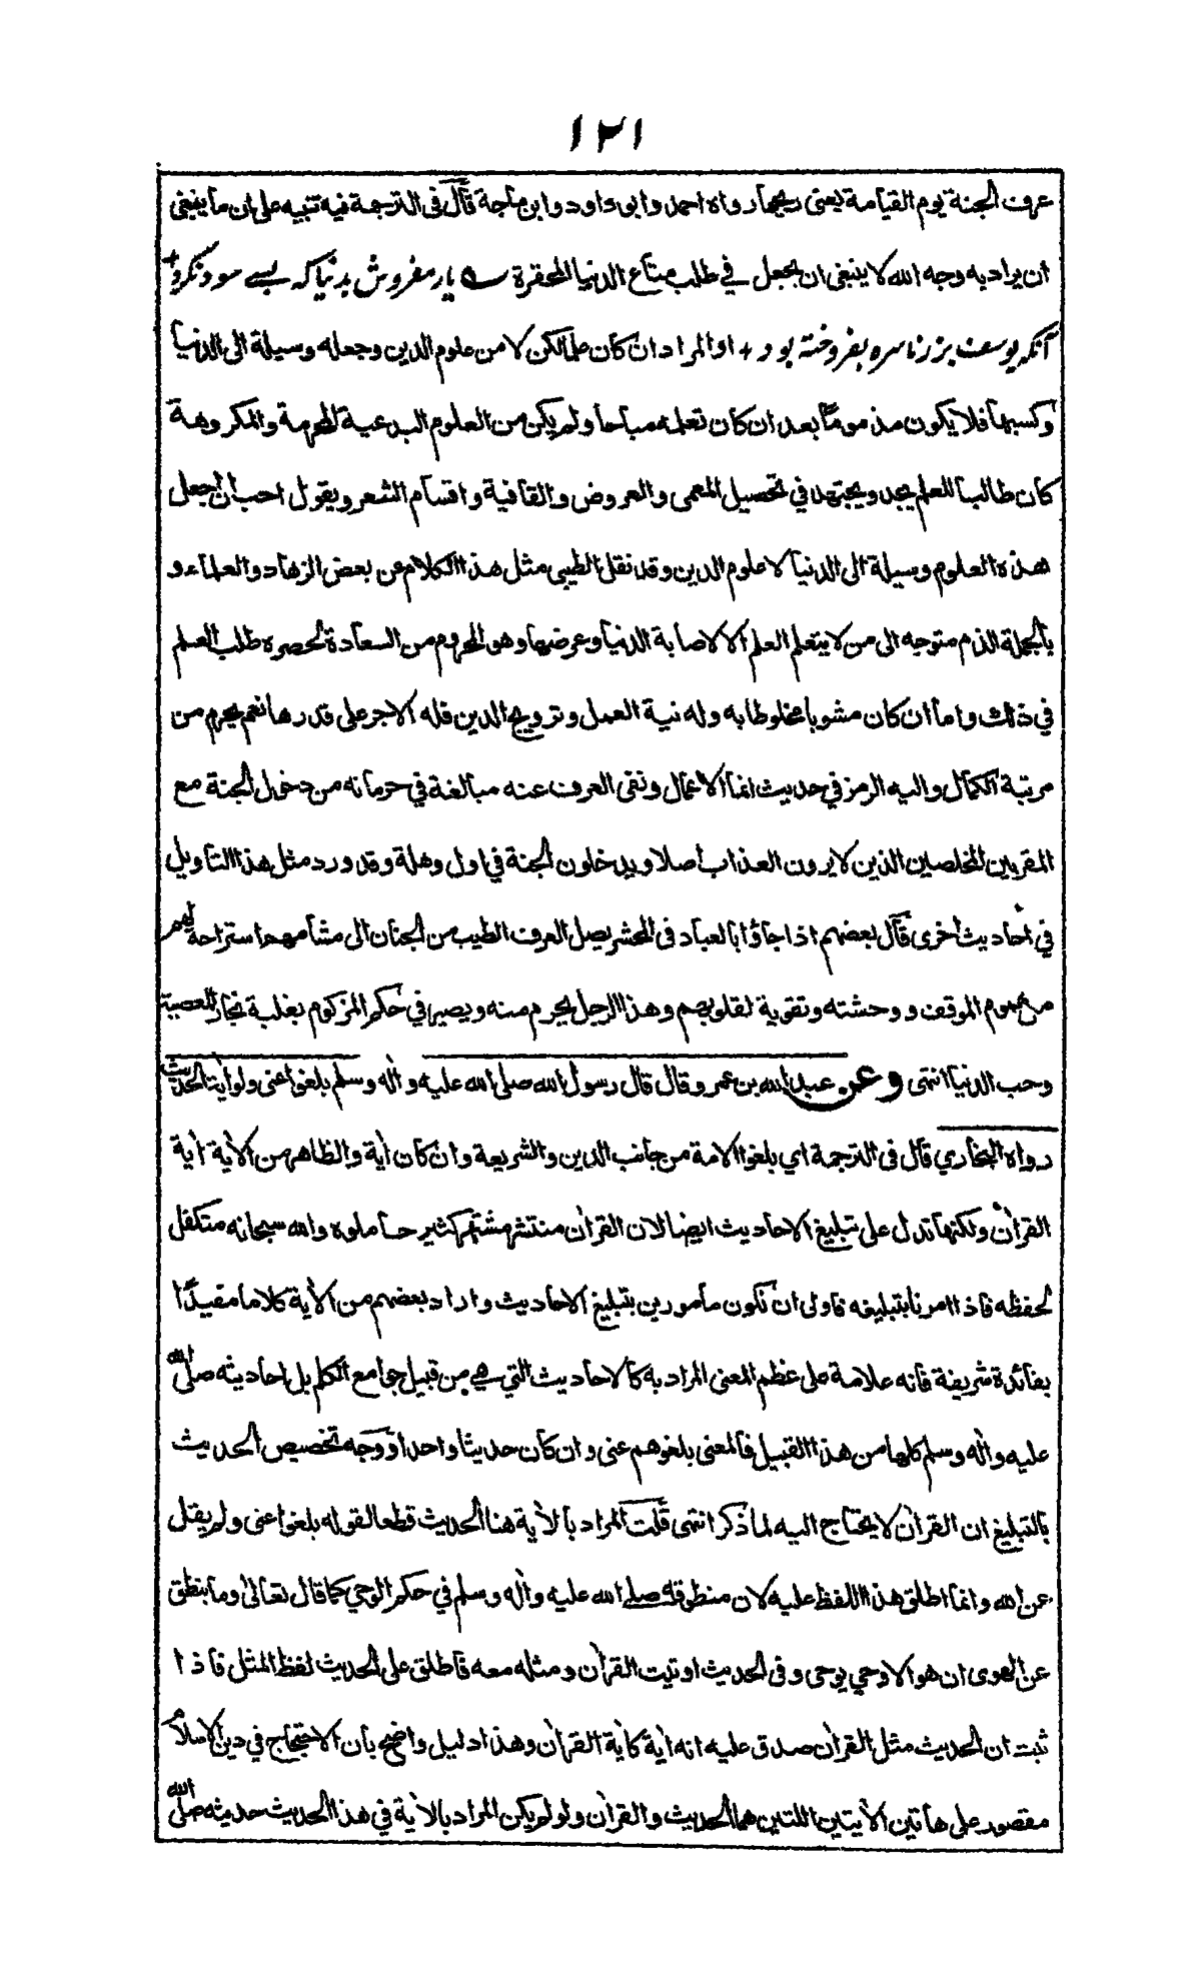 ١٢١
عرف الجنة يوم القيامة يعني ريحها رواه احمد وابوداود وابن ماجة قال في الترجمة فيه تنبيه على ان ما ينبغي
ان يراد به وجه الله لا ينبغي ان يجعل في طلب متاع الدنيا المحقرة یار مفروش بدنیا که بسے سود نکرد
آنکه یوسف بزر ناسره بفروخته بود + او المراد ان كان علما لكن لا من علوم الدين وجعله وسيلة الى الدنيا
وكسبها فلا يكون مذموما بعد ان كان تعلمه مباحا ولم يكن من العلوم البدعية المحرمة والمكروهة
كان طالبا للعلم يجد ويجتهد في تحصيل المعمى والعروض والقافية واقسام الشعر ويقول احب ان اجعل
هذه العلوم وسيلة الى الدنيا لا علوم الدين وقد نقل الطيبي مثل هذا الكلام عن بعض الزهاد والعلماء و
بالجملة الذم متوجه الى من لا يتعلم العلم الا لاصابة الدنيا وعرضها وهو المحروم من السعادة لحصره طلب العلم
في ذلك واما ان كان مشوبا مخلوطا به وله نية العمل وترويج الدين فله الاجر على قدرها نعم يحرم من
مرتبة الكمال واليه الرمز في حديث انما الاعمال ونفى العرف عنه مبالغة في حرمانه من دخول الجنة مع
المقربين المخلصين الذين لا يرون العذاب اصلا ويدخلون الجنة في اول وهلة وقد ورد مثل هذا التاويل
في احاديث اخرى قال بعضهم اذا جاؤا بالعباد في المحشر يصل العرف الطيب من الجنان الى مشامهم استراحة لهم
من هموم الموقف ووحشته وتقوية لقلوبهم وهذا الرجل يحرم منه ويصير في حكم المزكوم بغلبة بخار المعصية
وحب الدنيا انتهى وعن عبد الله بن عمرو قال قال رسول الله صلى الله عليه واله وسلم بلغوا عني ولو اية الحديث
رواه البخاري قال في الترجمة اي بلغوا الامة من جانب الدين والشريعة وان كان اية والظاهر من الاية اية
القران ولكنها تدل على تبليغ الاحاديث ايضا لان القران منتشر مشتهر كثير حاملوه والله سبحانه متكفل
لحفظه فاذا امرنا بتبليغه فاولى ان نكون مامورين بتبليغ الاحاديث واراد بعضهم من الاية كلاما مقيدًا
بفائدة شريفة فانه علامة على عظم المعنى المراد به كالاحاديث التي هي من قبيل جوامع الكلم بل احاديثه صلى الله
عليه واله وسلم كلها من هذا القبيل فالمعنى بلغوهم عني وان كان حديثا واحدا ووجه تخصيص الحديث
بالتبليغ ان القران لا يحتاج اليه لما ذكر انتهى قلت المراد بالاية هنا الحديث قطعا لقوله بلغوا عني ولم يقل
عن الله وانما اطلق هذا اللفظ عليه لان منطوقه صلے الله عليه واله وسلم في حكم الوحي كما قال تعالى وما ينطق
عن الهوى ان هو الا وحي يوحى وفي الحديث اوتيت القران ومثله معه فاطلق على الحديث لفظ المثل فاذا
ثبت ان الحديث مثل القران صدق عليه انه اية كاية القران وهذا دليل واضح بان الاحتجاج في دين الاسلام
مقصور على هاتين الايتين اللتين هما الحديث والقران ولو لم يكن المراد بالاية في هذا الحديث حديثه صلى الله